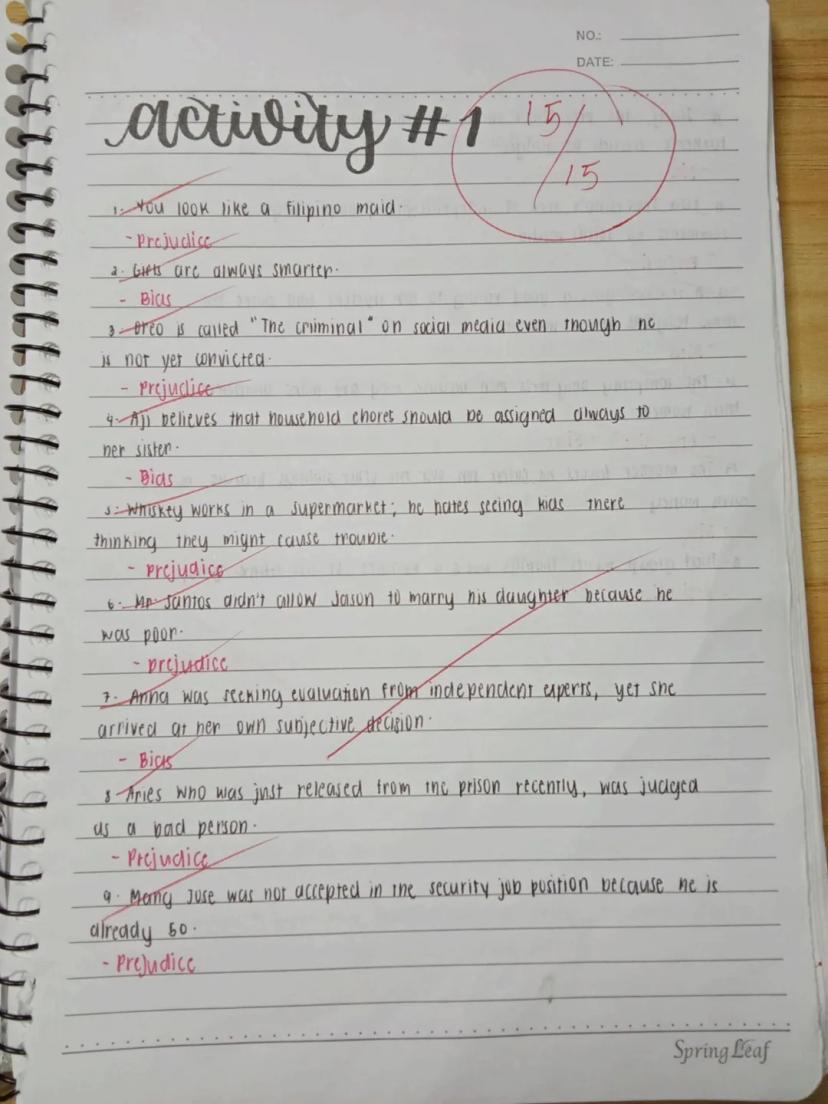 NO.:
DATE:
activity #1
15/15
1. You look like a filipino maid.
- Prejudice
2. Gifts are always smarter.
- Bias
3. Oreo is called "The criminal" on social media even though he
is not yet convicted.
- Prejudice
4. Aji believes that household chores should be assigned always to
her sister.
- Bias
5. Whiskey works in a supermarket; he hates seeing kids there
thinking they might cause trouble.
- prejudice
6. Mr. Santos didn't allow Jason to marry his daughter because he
was poor.
- prejudice
7. Anna was seeking evaluation from independent experts, yet she
arrived at her own subjective decision.
- Bias
8. Aries who was just released from the prison recently, was judged
as a bad person.
- Prejudice
9. Mang Jose was not accepted in the security job position because he is
already 50.
- Prejudice
Spring Leaf